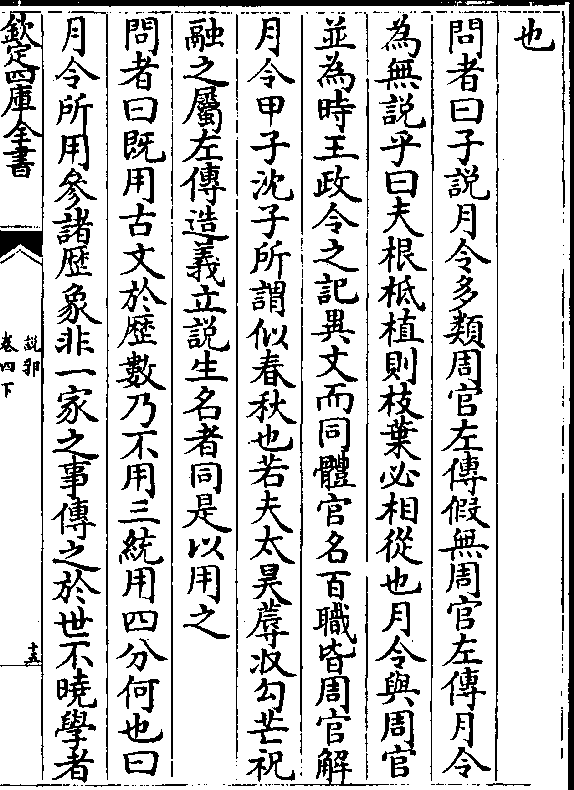 也
問者曰子説月令多類周官左傳假無周官左傳月令
為無説乎曰夫根柢植則枝葉必相從也月令與周官
並為時王政令之記異文而同體官名百職皆周官解
月令甲子沈子所謂似春秋也若夫太昊蓐收勾芒祝
融之屬左傳造義立説生名者同是以用之
問者曰既用古文於歴數乃不用三統用四分何也曰
月令所用參諸歴象非一家之事傳之於世不曉學者
欽定四庫全書
説郛
卷四下
十五